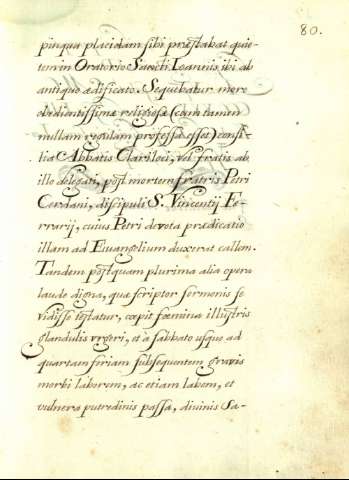 80.
pinqua placidam sibi præstabat quie-
tem in Oratorio Sancti Ioannis ibi ab
antiquo ædificato. Sequebatur more
obedientissima religiosa (cum tamen
nullam regulam professa esset) consi-
lia Abbatis Clariloci, vel fratris ab
illo delegati, post mortem fratris Petri
Cerdani, discipuli S. Vincentij Fe-
rrarij, cuius Petri devota prædicatio
illam ad Euangelium duxerat callem.
Tandem postquam plurima alia opera
laude digna, quæ scriptor sermonis se
vidisse testatur, cœpit fœmina illustris
glandulis vrgeri, et à sabbato usque ad
quartam feriam subsequentem gravis
morbi laborem, ac etiam labem, et
vulnera putredinis passa, divinis Sa-